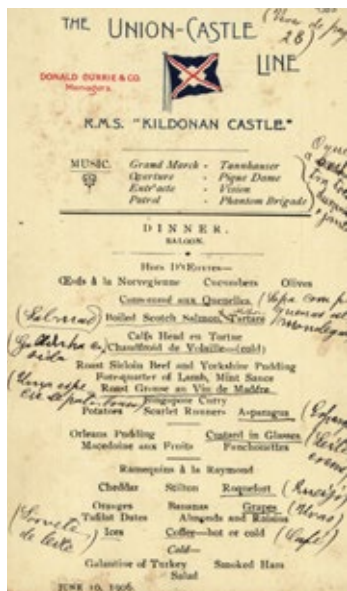 THE UNION-CASTLE
LINE
(Vive de pag
28)
DONALD CURRIE & CO.
Managers.
R.M.S. "KILDONAN CASTLE."
MUSIC. Grand March - Tannhauser
Overture - Pique Dame
Entr'acte - Vision
Patrol - Phantom Brigade
DINNER.
SALOON.
HORS D'ŒUVRES—
Œufs à la Norvegienne Cucumbers Olives
Consommé aux Quenelles (Sopa com p
(Salmão) Boiled Scotch Salmon, Tartare
Calfs Head en Tortue
Chaudfroid de Volaille—(cold)
Roast Sirloin Beef and Yorkshire Pudding
Fore-quarter of Lamb, Mint Sauce
Roast Grouse au Vin de Madère
Singapore Curry
Potatoes Scarlet Runners Asparagus
Orleans Pudding Custard in Glasses
Macedoine aux Fruits Fanchonettes
Ramequins à la Raymond
Cheddar Stilton Roquefort (Queijo)
Oranges Bananas Grapes (Uvas)
Tafilat Dates Almonds and Raisins
(Sorvete
de leite) Ices Coffee—hot or cold (Café)
Cold—
Galantine of Turkey Smoked Ham
Salad
JUNE 10, 1906.